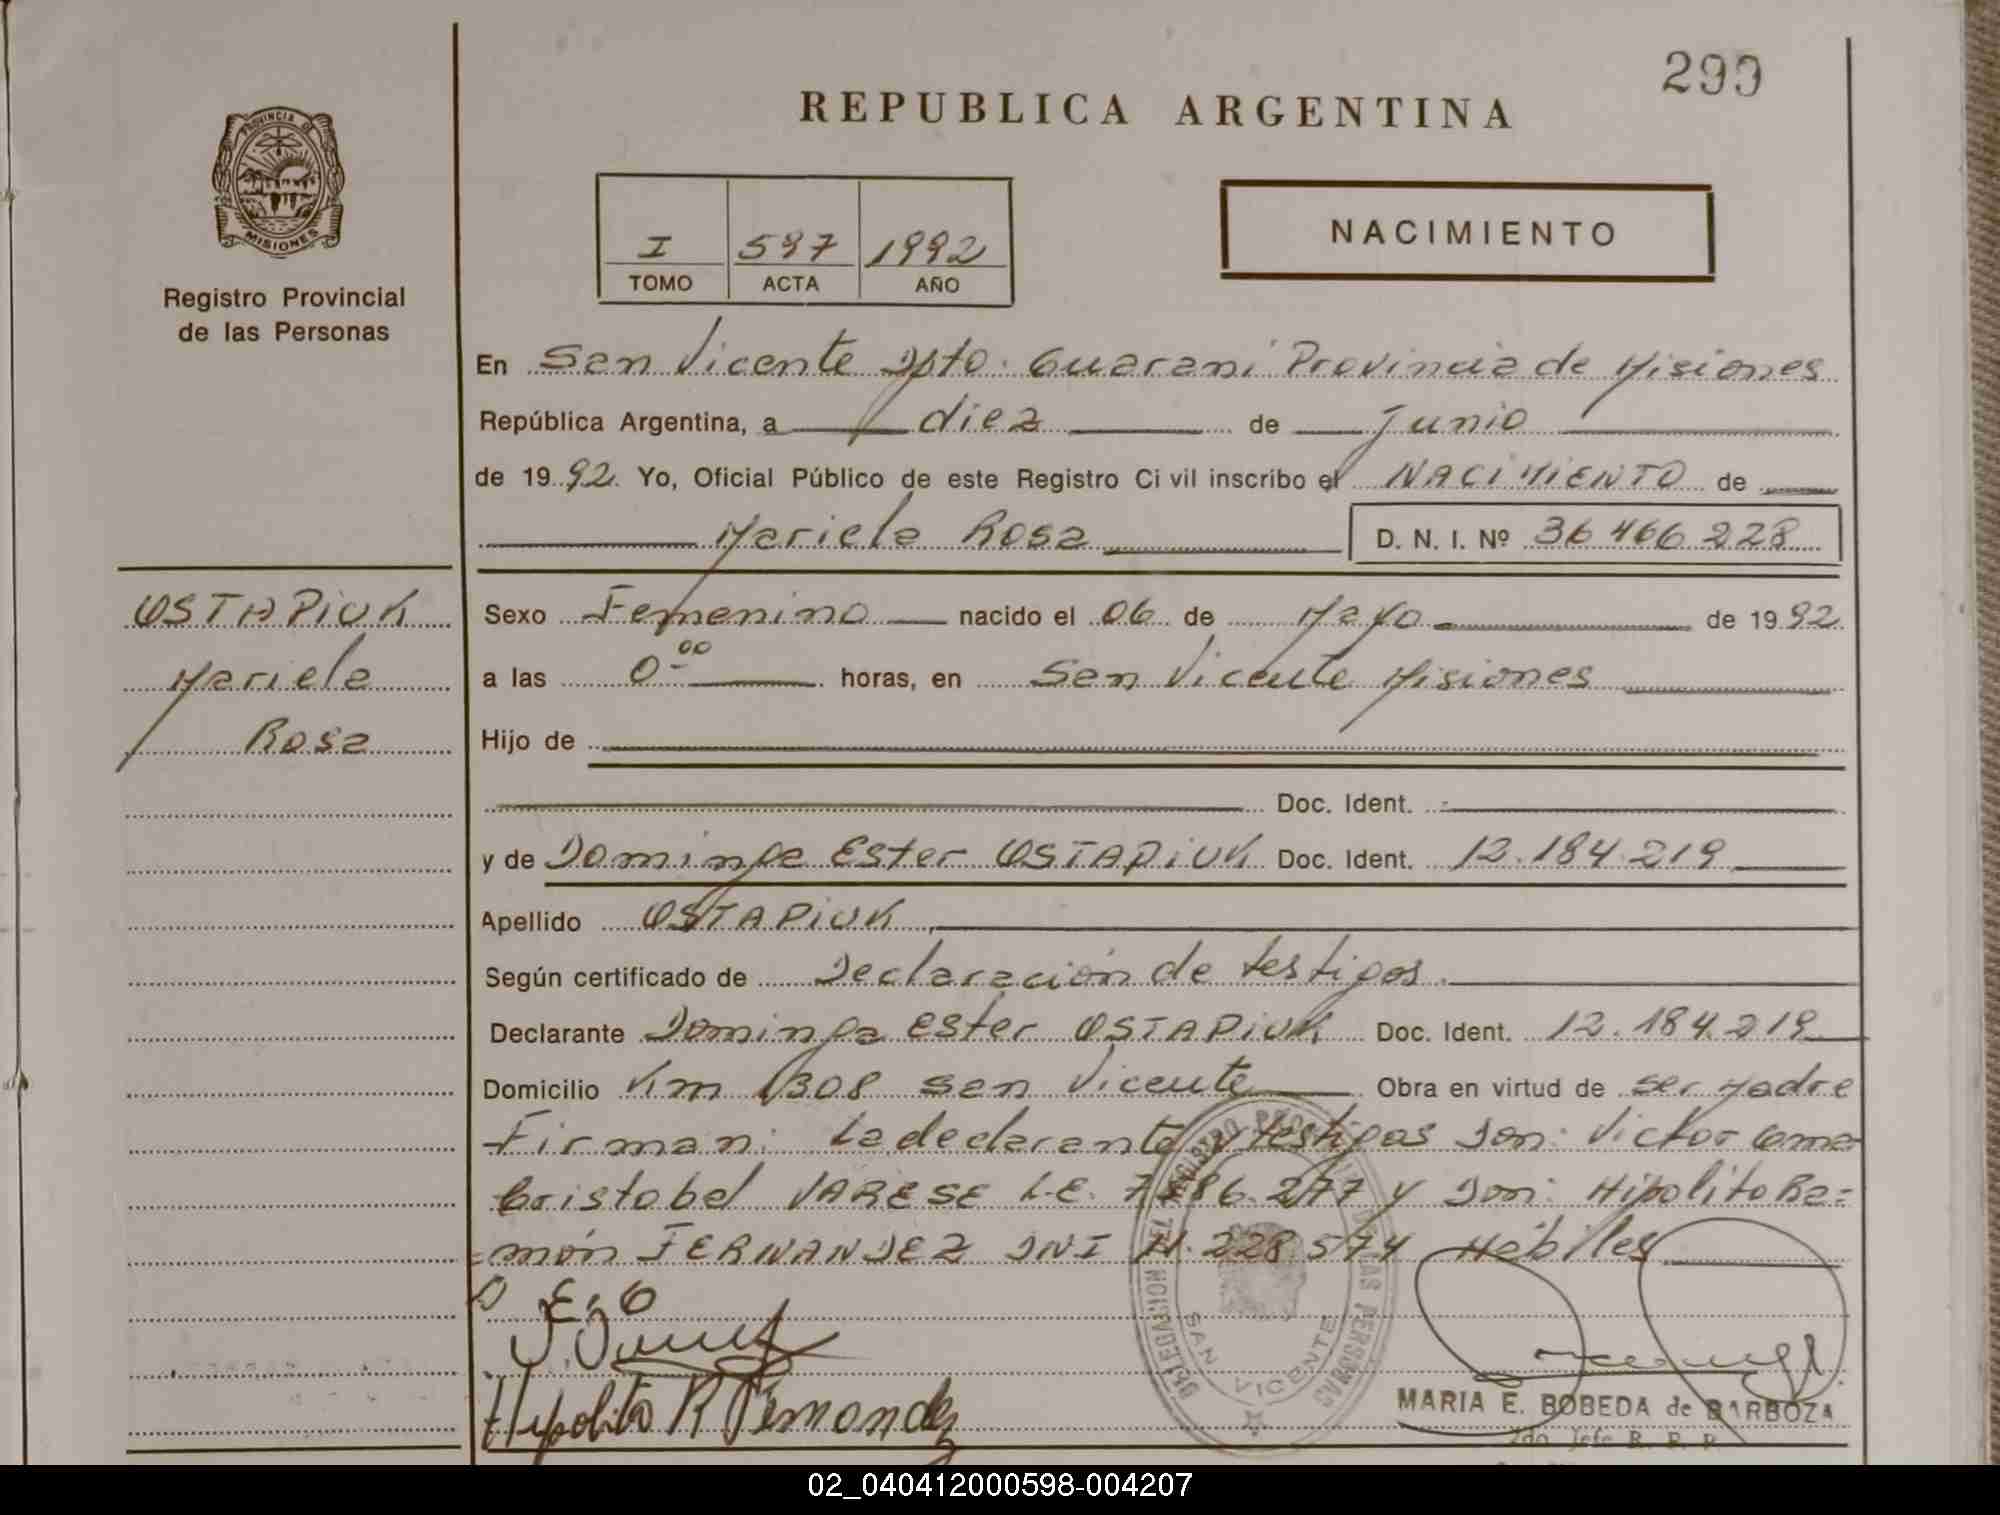 299
REPUBLICA ARGENTINA
PROVINCIA DE
MISIONES
Registro Provincial
de las Personas
I 597 1992
TOMO ACTA AÑO
NACIMIENTO
En San Vicente Dpto. Guarani Provincia de Misiones
República Argentina, a diez de Junio
de 1992. Yo, Oficial Público de este Registro Civil inscribo el NACIMIENTO de
Mariela Rosa D. N. I. Nº 36 466 228
OSTAPIUK
Mariela
Rosa
Sexo Femenino nacido el 06 de Mayo de 1992
a las 0-00 horas, en San Vicente Misiones
Hijo de
Doc. Ident.
y de Dominga Ester OSTAPIUK Doc. Ident. 12.184.219
Apellido OSTAPIUK
Según certificado de Declaración de testigos.
Declarante Dominga Ester OSTAPIUK Doc. Ident. 12.184.219
Domicilio Km 1308 San Vicente Obra en virtud de ser Madre
Firman: La declarante y testigos Don: Victor Come
Cristobel VARESE L.E. 7. 86.277 y Don: Hipolito Ra=
=món FERNANDEZ DNI 11.228.574 Hábiles
D E. O
Hipolito R Fernandez
DELEGACION REGISTRO PROVINCIAL DE LAS PERSONAS
SAN VICENTE
MARIA E. BOBEDA de BARBOZA
2do Jefe R. P. P.
02_040412000598-004207